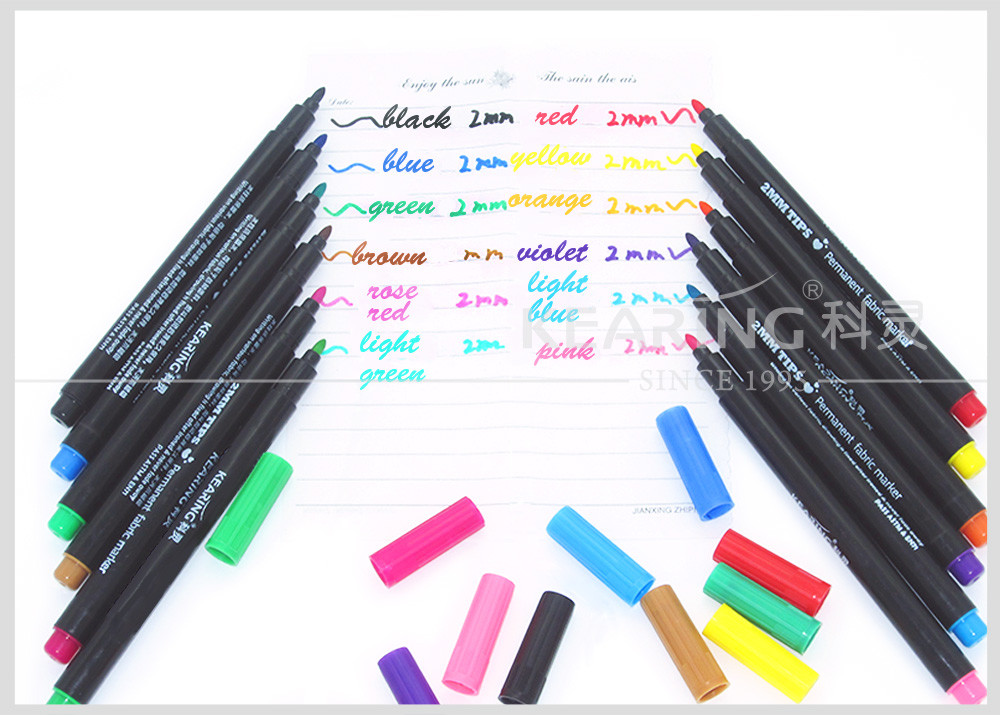 Enjoy the sun The sain the ais
Date:
black 2mm red 2mm
blue 2mm yellow 2mm
green 2mm orange 2mm
brown mm violet 2mm
rose red 2mm light blue 2mm
light green 2mm pink 2mm
KEARING® 科灵
SINCE 1995
JIANXING ZHIPI
2MM TIPS Permanent fabric marker
2MM TIPS Permanent fabric marker
PASS ASTM & EN71
KEARING
2MM TIPS Permanent fabric marker
KEARING 科灵
PASS ASTM & EN71